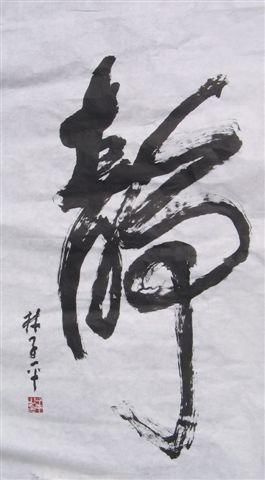 静
林子平